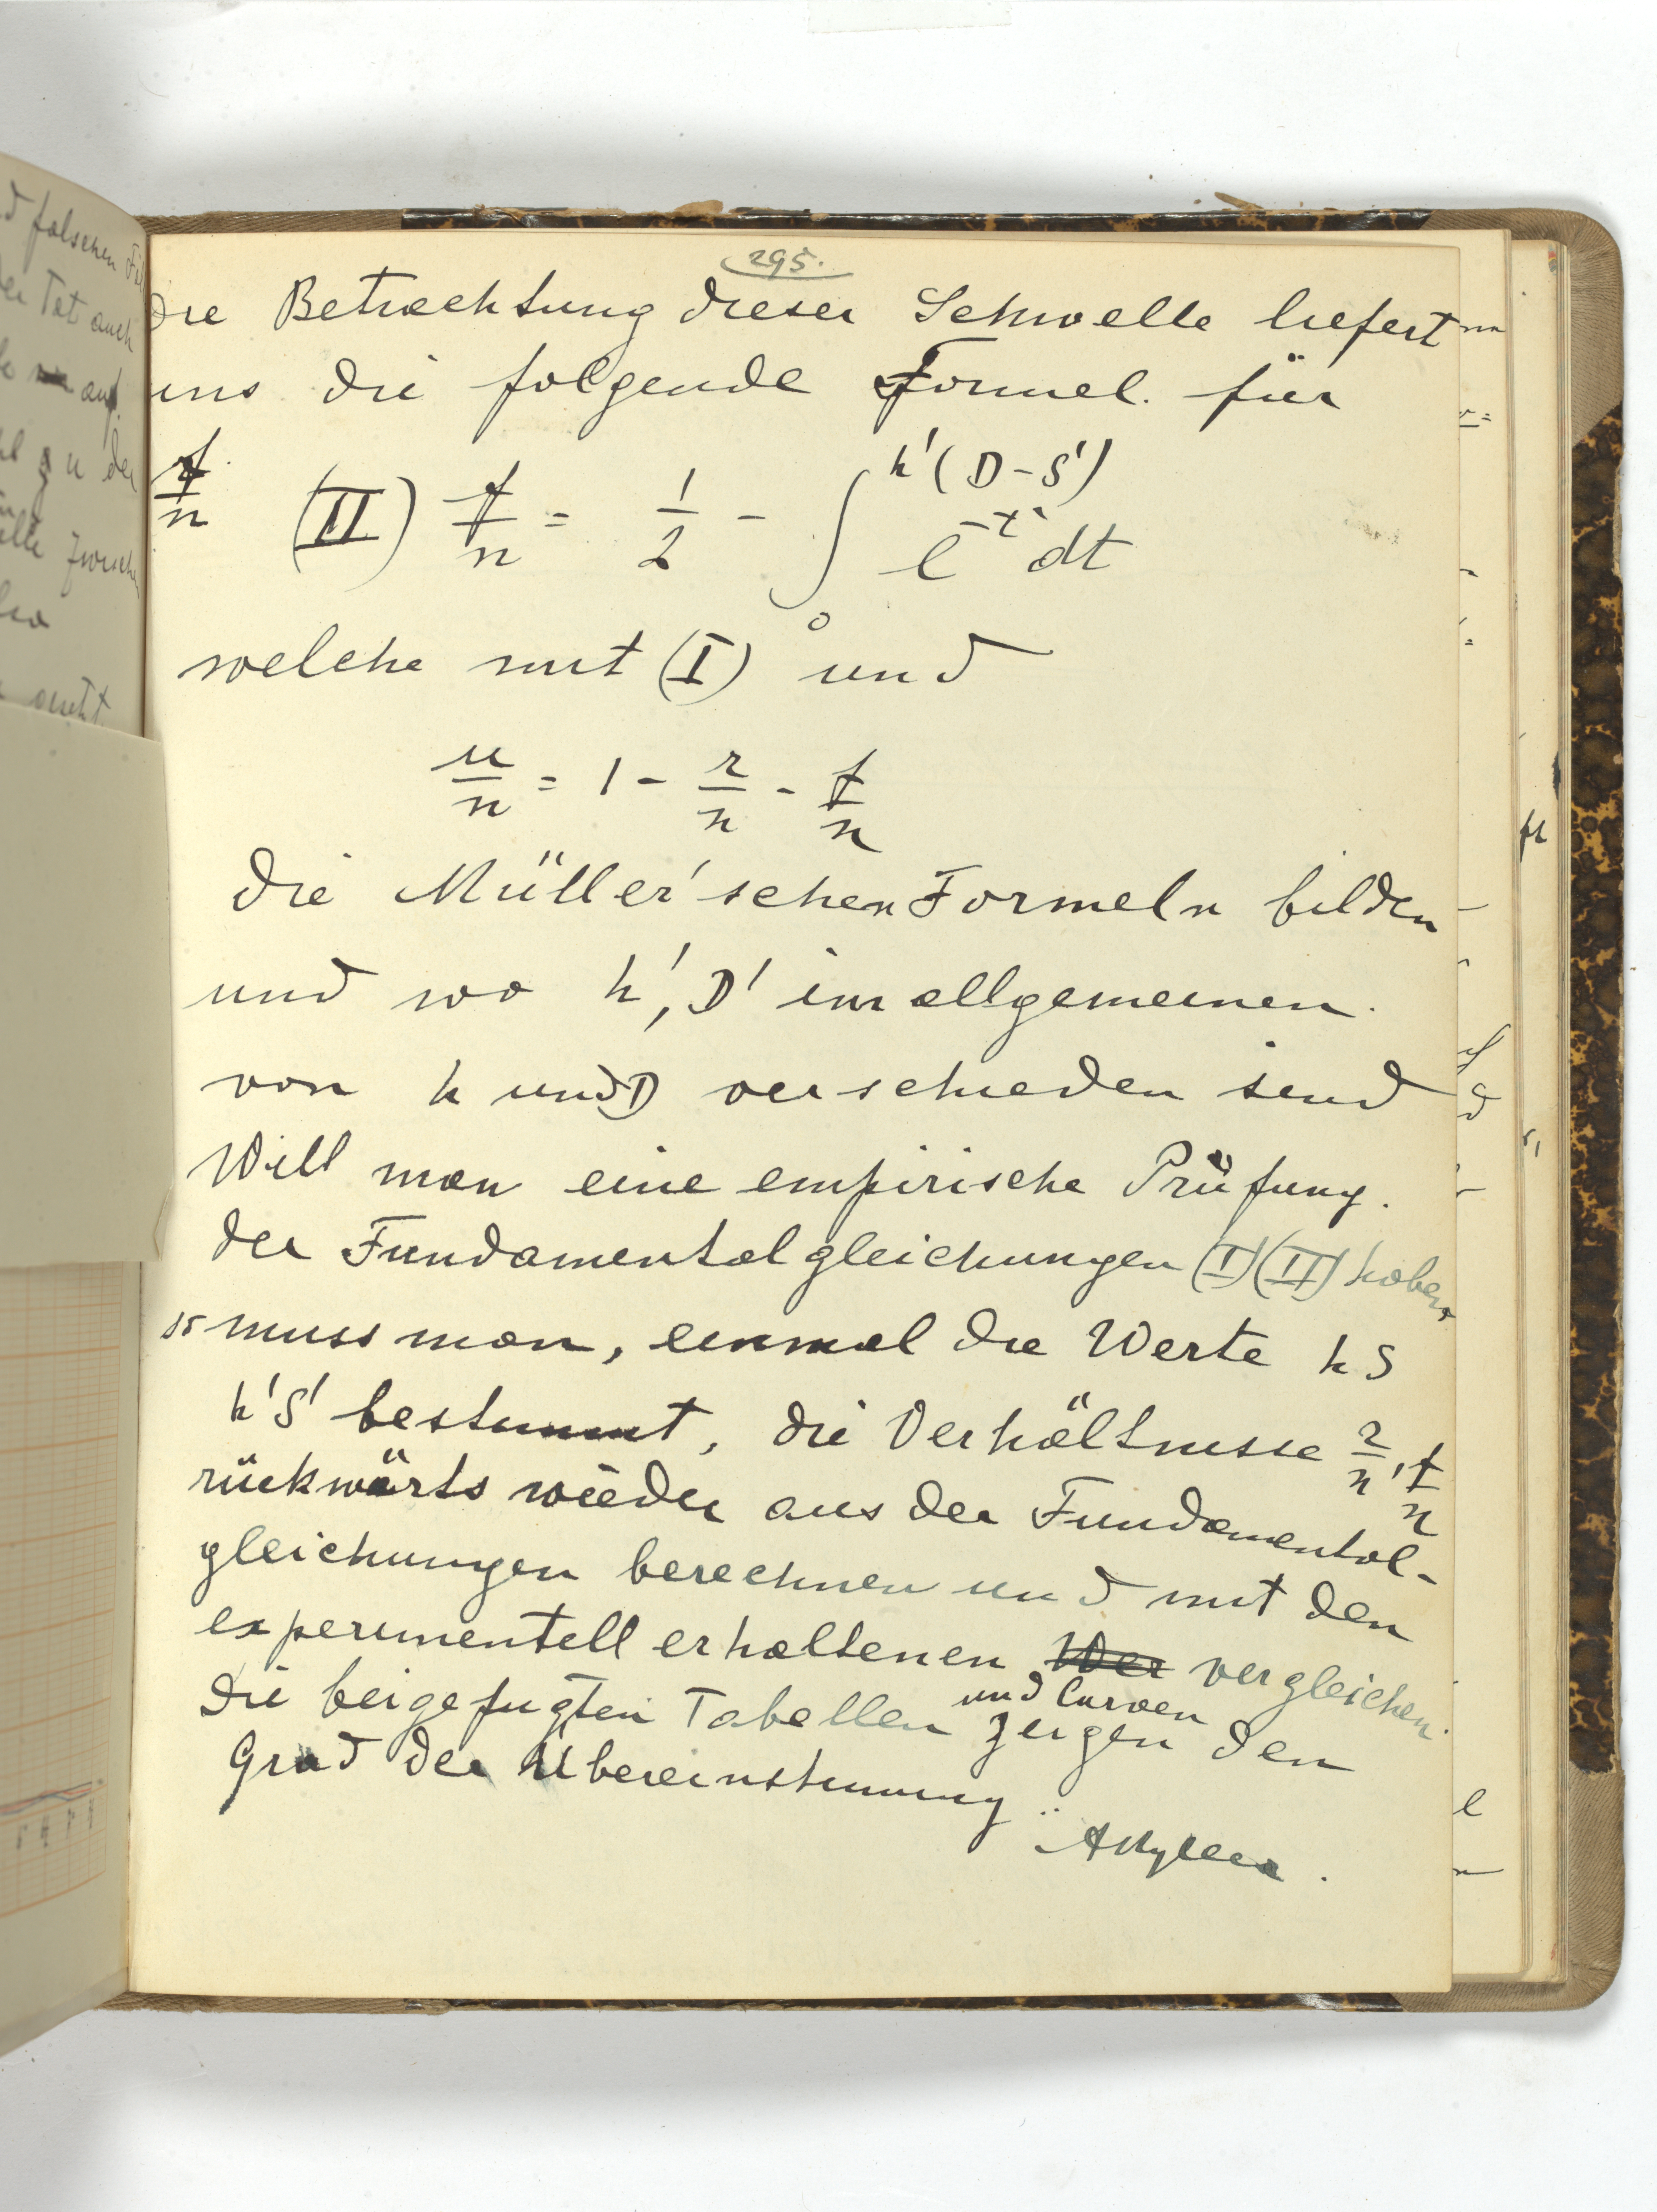 295.
Die Betrachtung dieser Schwelle liefert
uns die folgende Formel. für
f/n (II) f/n = 1/2 - ∫₀^{h'(D-S')} e^{-t²} dt
welche mit (I) und
u/n = 1 - r/n - f/n
die Müller'schen Formeln bilden
und wo h', D' im allgemeinen.
von h und D verschieden sind
Will man eine empirische Prüfung.
der Fundamentalgleichungen (I) (II) haben
so muss man, einmal die Werte h S
h' S' bestimmt, die Verhältnisse r/n, f/n
rückwärts wieder aus der Fundamental-
gleichungen berechnen und mit den
experimentell erhaltenen Wer vergleichen.
und Curven
Die beigefugten Tabellen zeigen den
Grad der Übereinstimmung